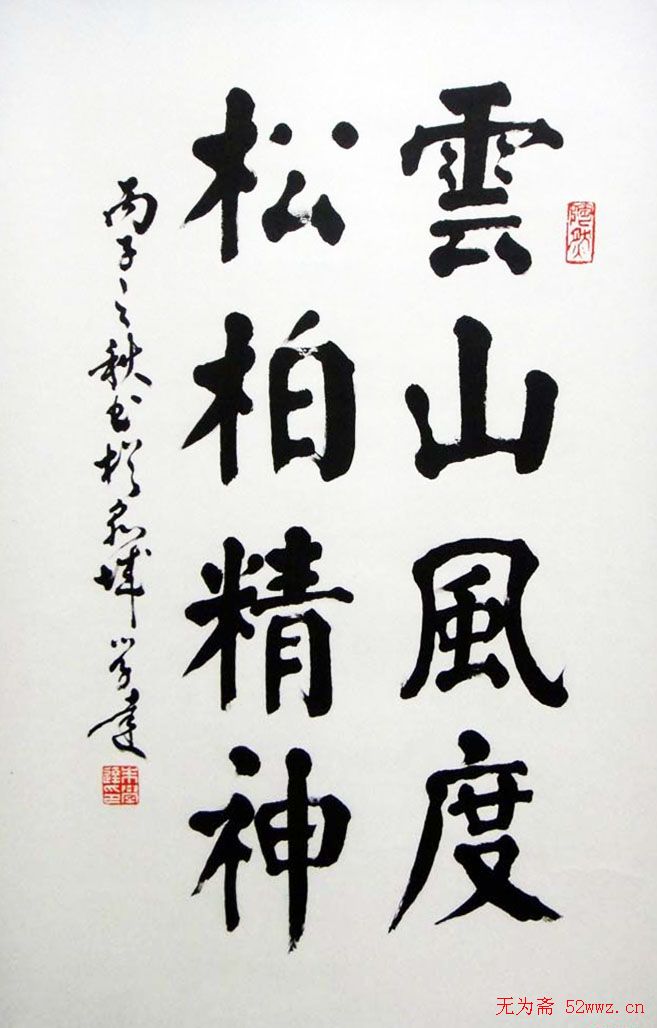 雲山風度
松柏精神
丙子之秋书於泉城学達
无为斋 52wwz.cn